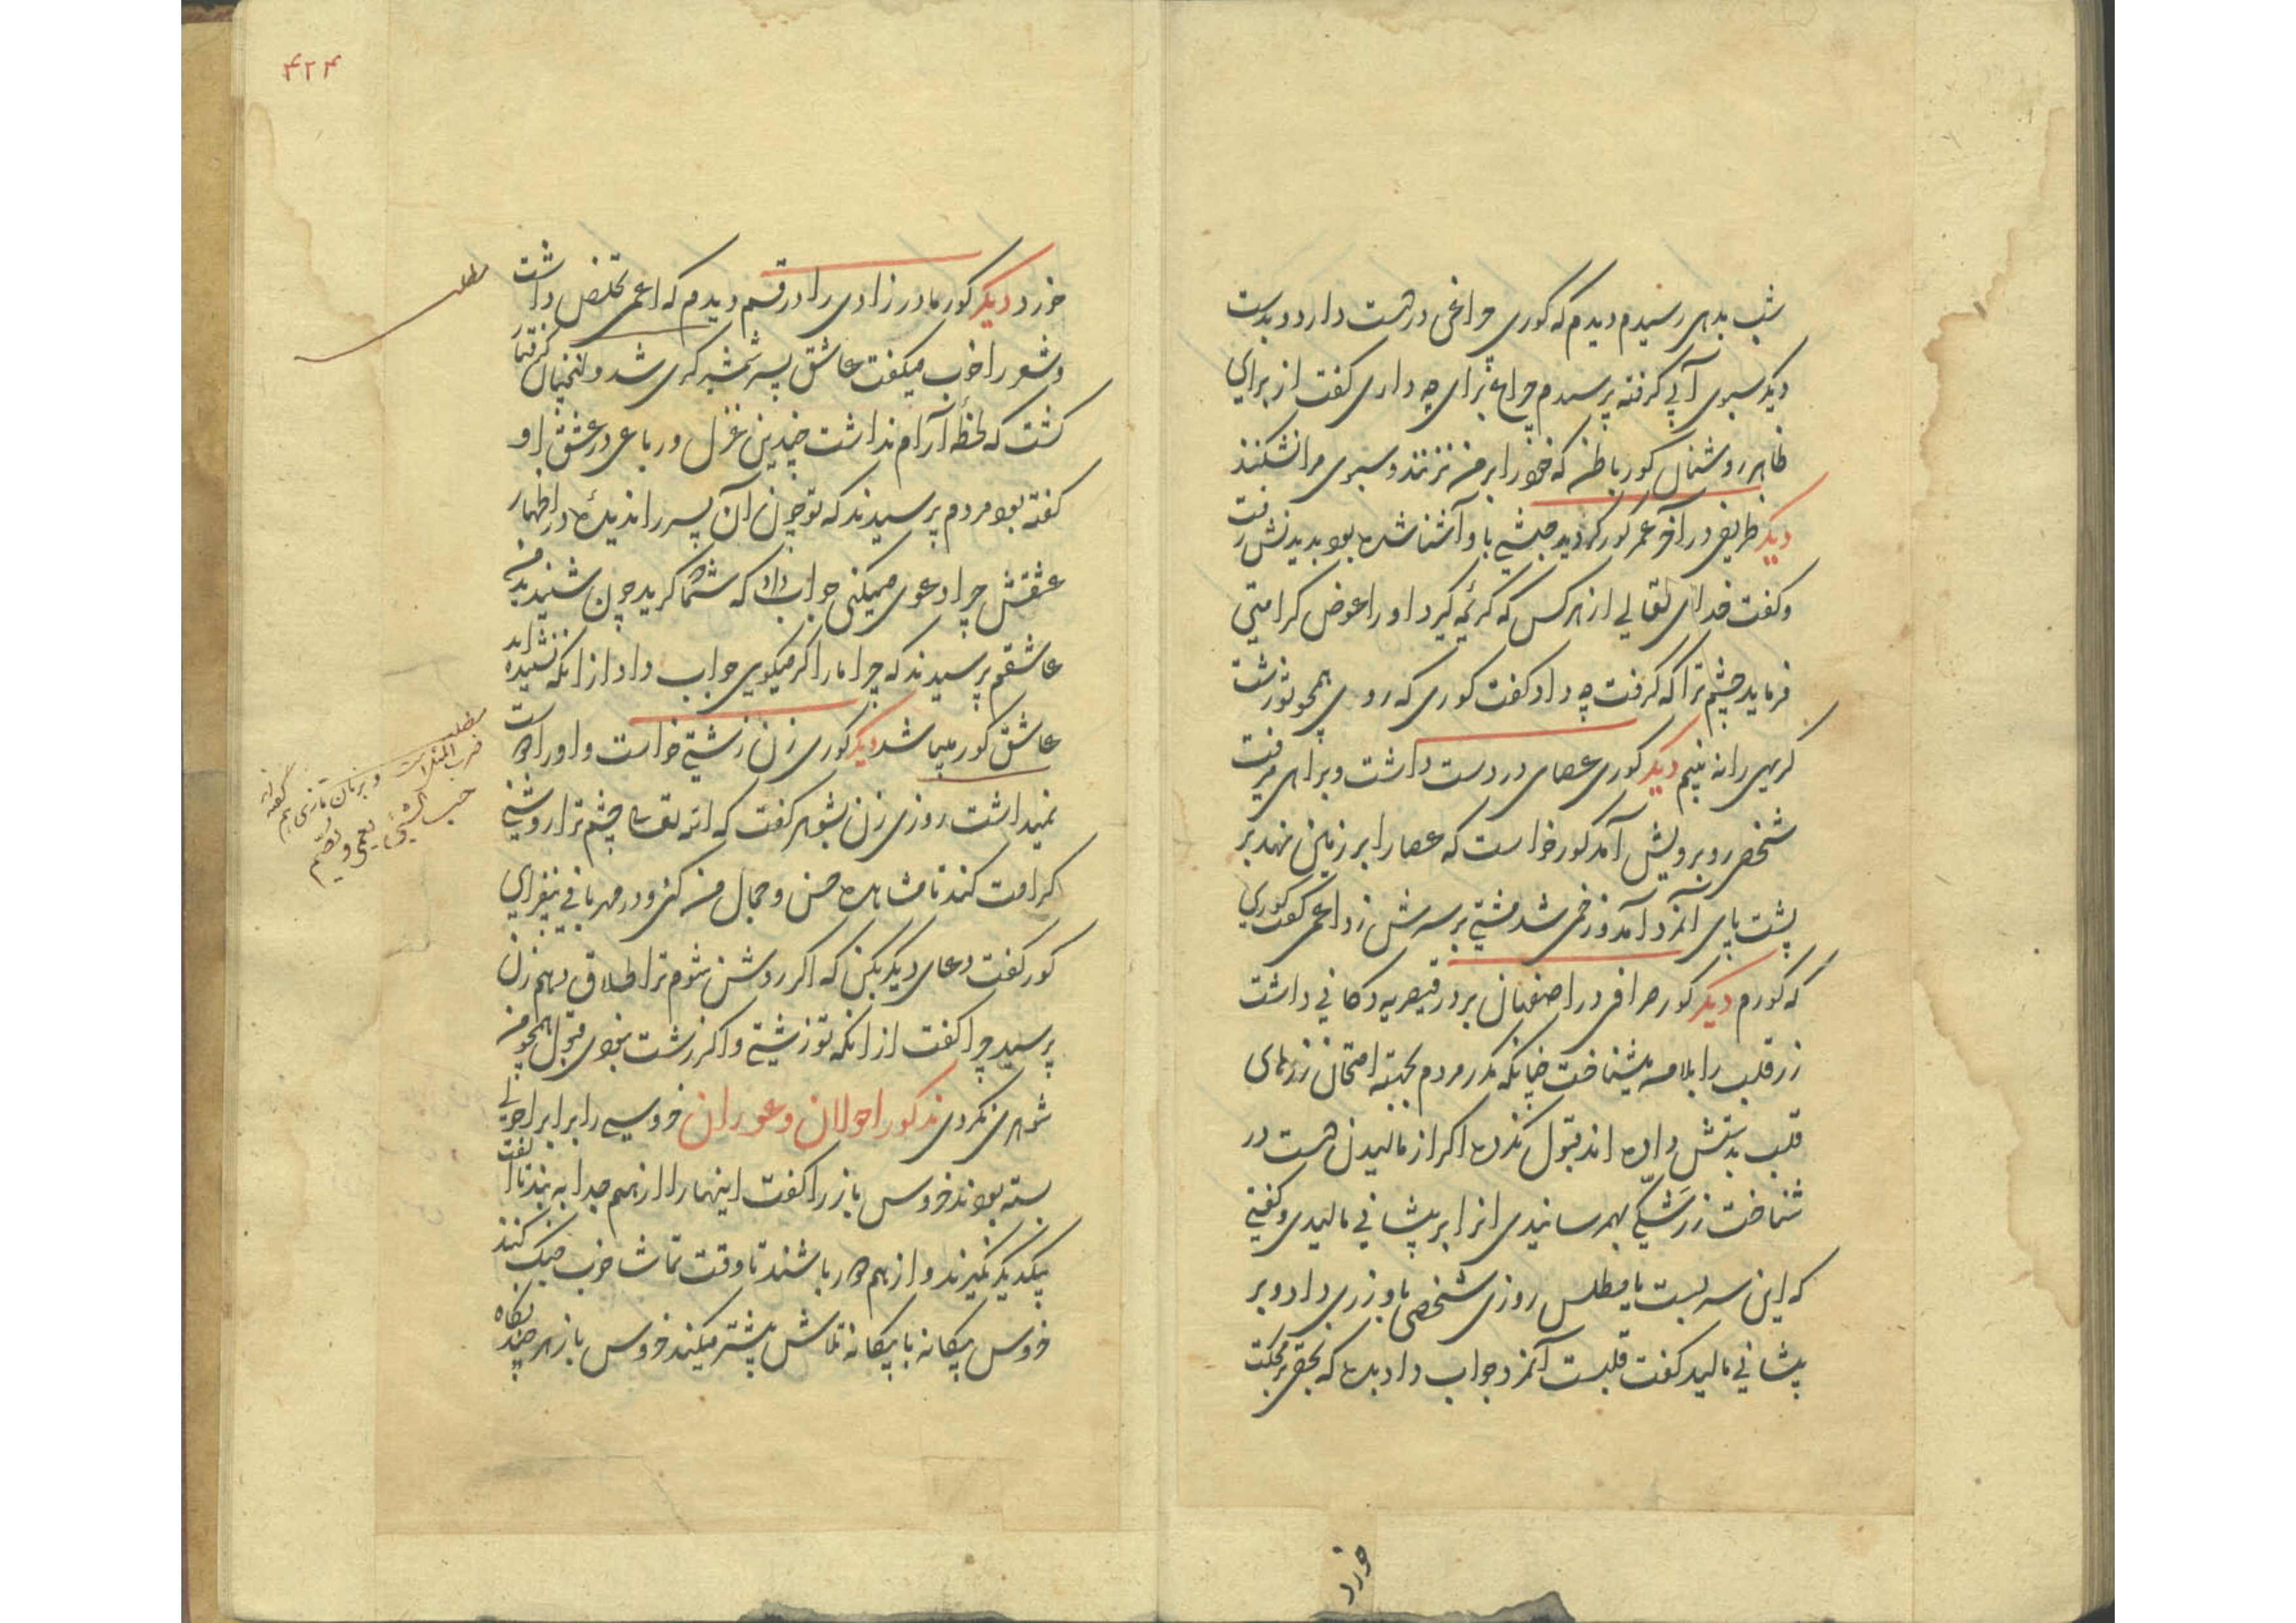 شب بدهی رسیدم دیدم که کوری چراغی در دست دارد و بدست
دیکر سبوی آبی کرفته پرسیدم چراغ برای چه داری کفت از برای
ظاهر روشنان کور باطن که خود را بر من نزنند و سبوی مرا نشکنند
دیکر ظریفی در آخر عمر کور کردید جبشی با او آشنا شده بود بدیدنش رفت
و کفت خدای تعالی از هر کس که کریمه کیرد او را عوض کرامتی
فرماید چشم ترا که کرفت چه داد کفت کوری که روی همچو تو زشت
کریهی را نه بینم دیکر کوری عصای در دست داشت و براهی میرفت
شخصی روبرویش آمد کور خواست که عصا را بر زمین نهد بر
پشت پای آنمرد آمد و زخمی شد مشتی بر سرش زد اعمی کفت کوری
که کورم دیکر کور صرافی در اصفهان بر در قیصریه دکانی داشت
زر قلب را بلامسه میشناخت چنانکه مردم بجهته امتحان زرهای
قلب بدستش داده اند قبول نکرده اکر از مالیدن دست در
شناخت زر شکی بهمرسانیدی انرا بر پیشانی مالیدی و کفتی
که این سربست یا مطلس روزی شخصی باو زری داد و بر
پیشانی مالید کفت قلبست آنمرد جواب داد بده که بحق بر محکت
خورد
۴۲۴
خورد دیکر کور مادرزادی را در قم دیدم که اعمی تخلص داشت
و شعر را خوب میکفت عاشق پسر شمشیرکری شد و انچنان کرفتار
کشت که لحظه آرام نداشت چندین غزل و رباعی در عشق او
کفته بود مردم پرسیدند که تو چون آن پسر را ندیدهٔ در اظهار
عشقش چرا دعوی میکنی جواب داد که شما کرید چون شنید بد من
عاشقم پرسیدند که چرا ما را کر میکویی جواب داد از انکه نشنیده اید
عاشق کور میباشد دیکر کوری زن زشتی خواست و او را دوست
نمیداشت روزی زن بشوهر کفت که الله تعالی چشم ترا روشنی
کرامت کند تا مشاهده حسن و جمال من کنی و در مهربانی بیفزای
کور کفت دعای دیکر بکن که اکر روشن شوم ترا طلاق دهم زن
پرسید چرا کفت از انکه تو زشتی و اکر زشت نبودی قبول همچو من
شوهری نکردی تذکور احولان و عوران خروسی را برابر احولی
بسته بودند خروس باز را کفت اینها را از هم جدا به بند تا الفت
بیکدیکر نکیرند و از هم دور باشند تا وقت تماشا خوب جنک کنند
خروس بیکانه با بیکانه تلاش بیشتر میکند خروس باز هر چند نکاه
مطلب
مطلب
ضرب المثل است و بزبان تازی هم کفته اند
حب الشیء یعمی و یصم